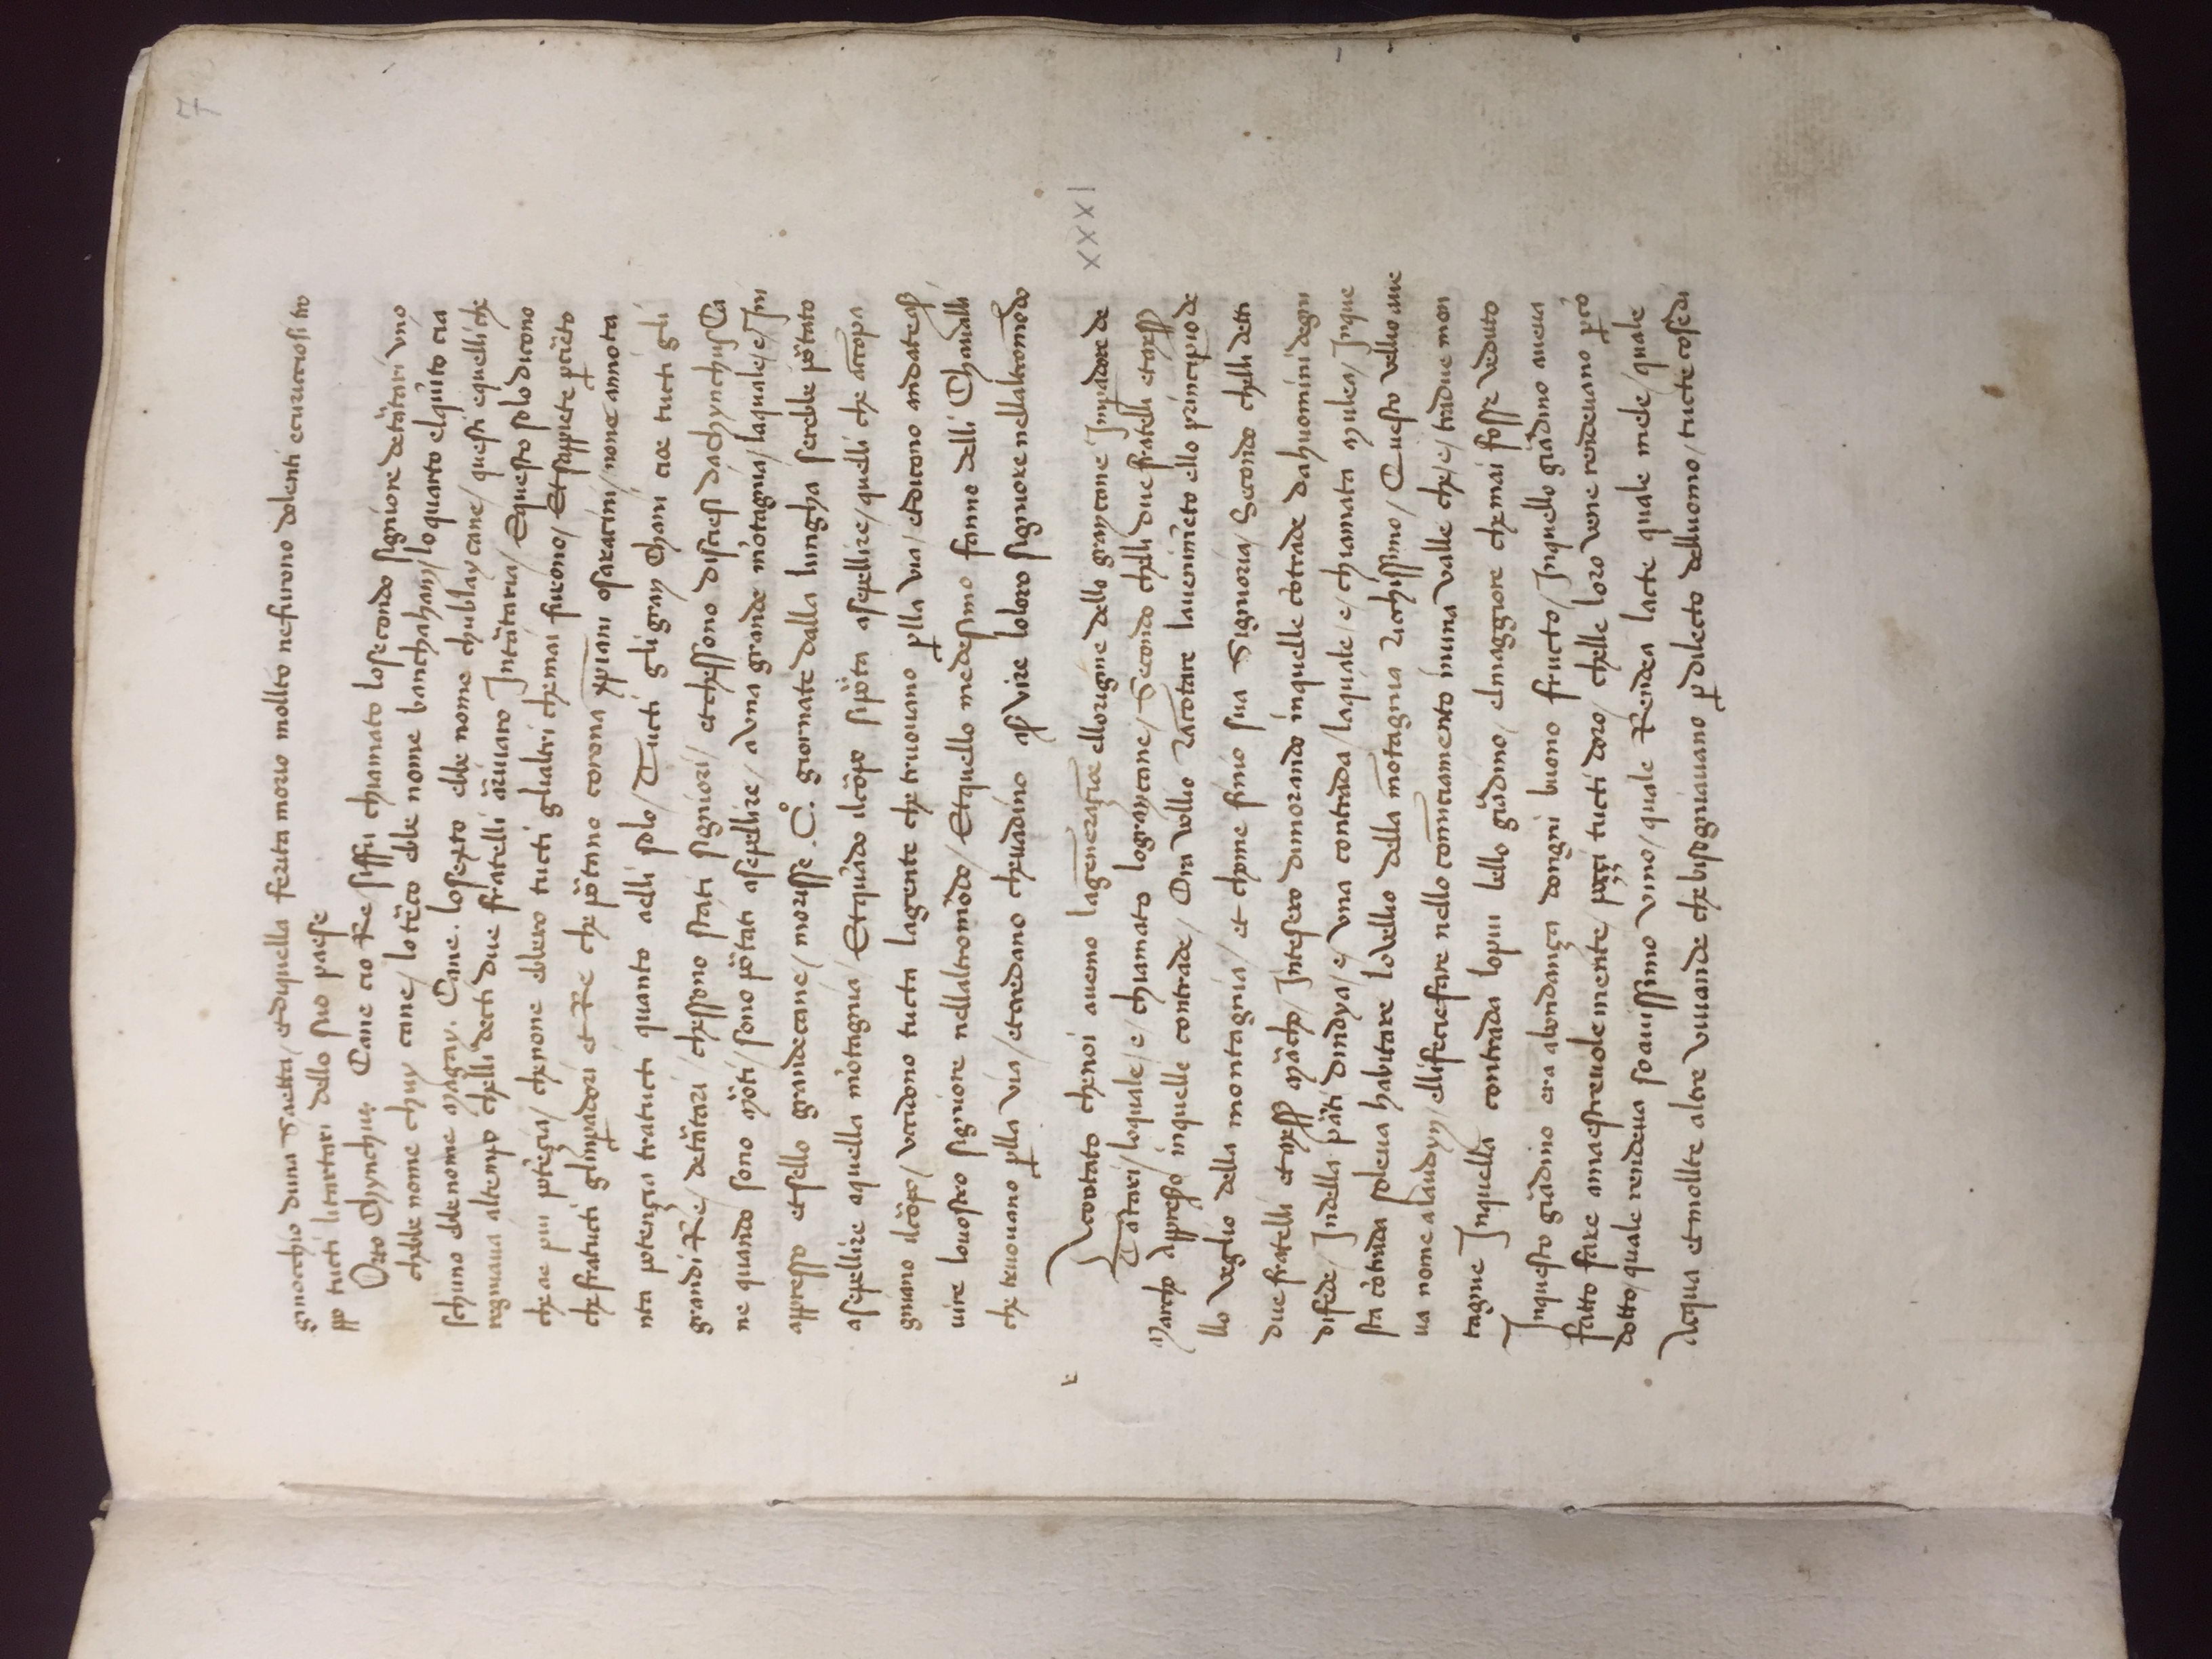 7
ginocchio duna Saetta / et diquella ferita morio mollto nefurono dolenti ecuricciosi tro
ppo tucti litartari dello suo paese
Orto Chynchus Cane cio Re / siffu chiamato losecondo signiore detãtari vno
chebbe nome chuy cane / lotẽco ebbe nome banchaham / loquarto elquĩto cia
schuno ebbenome magay. Cane. losexto ebbe nome chublay cane / questi equelli che
regniaua altempo chelli decti due fratelli ãrivaro Intãtaria / Equesto solo dicono
che ae piu potẽçia / chenone ebbero tucti glialtri chemai furono / Et sappiete p̱ciẽto
che fratucti glinp̱adori et Re che põtano corona xp̃iani osaracini / none anno ta
nta potençia tratucti quanto aelli solo / Tucti gli gray Chani cioe tucti gli
grandi Re / detãtari / chessono stati signiori / et chessono disciesi dachynchus Ca
ne quando sono mõti / sono põtati asepellire / a vna grande mõtagnia / laquale / e / Ini
appresso et sello grandecane / morisse .Cº. giornate dalla lungha serebbe põtato
asepellire aquella mõtagnia / Et quãdo ilcõpo sipõta asepellire / quelli che accõpa
gniano ilcõpo / vccidono tucta lagente che truouano p̱lla via / et dicono andate aß
uire louostro signiore nellaltromõdo / Et quello medesimo fanno delli Chaualli
che truouano p̱lla via / et credano cheuadino aß vire loloro signiore nellaltromõdo
r
Acontato chenoi auemo lagẽnerazioẽ ellorigine dello gray cane Inp̱adore de
Tãtari / loquale / e / chiamato logray cane / Secondo chelli due fratelli et meß
Marcho Appresso inquelle contrade / Ora vollio racõtare lauenimẽto ello principio de
llo veglio della montagnia / et chome finio sua Signioria / Secondo chelli detti
due fratelli et meß mãcho / Intesero dimorando inquelle cõtrade dahuomini degni
difede / Indella pãti dindya / e / vna contrada / laquale / e / chiamata mulea / Inque
sta cõtrada soleua habitare lo vellio della mõtagnia ricchissimo / Questo vellio aue
ua nome alaudyn / ellifeciefare nello comĩciamento inuna valle che / e / tradue mon
tagnie Inquella contrada lopiu bello giãdino / elmaggiore chemai fosse veduto
Inquesto giãdino era abondança dongni buono fructo / Inquello giãdino aueua
fatto fare amaestreuolemente / poççi tucti doro / chelle loro vene rendeuano p̱cõ
dotto / quale rendeua soauissimo vino / quale Rendea lacte quale mele / quale
Acqua et mollte altre viuande chebisogniauano p̱ dilecto delluomo / tucte cose di
xxxI